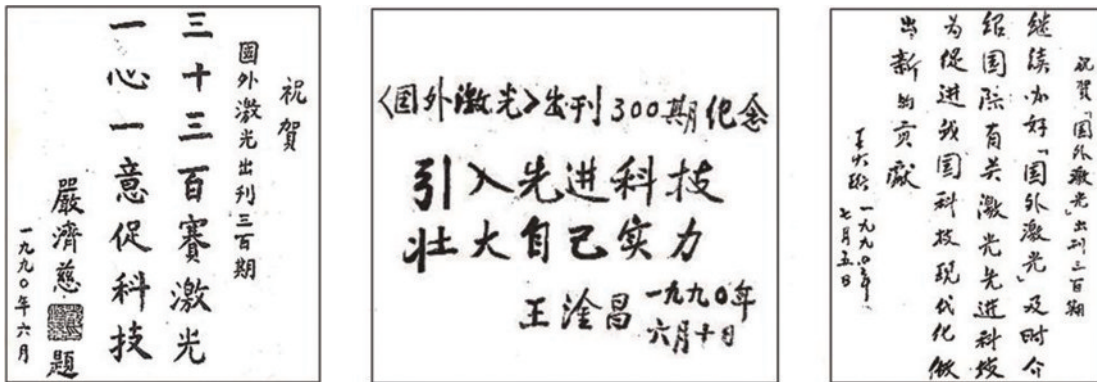 祝賀
國外激光出刊三百期
三十三百賽激光
一心一意促科技
嚴濟慈 題
一九九〇年六月
《国外激光》出刊300期纪念
引入先进科技
壮大自己实力
王淦昌 一九九〇年
六月十日
祝賀「国外激光」出刊三百期
继续办好「国外激光」及时介
绍国际有关激光先进科技
为促进我国科技现代化做
出新的贡献
王大珩 一九九〇年
七月五日